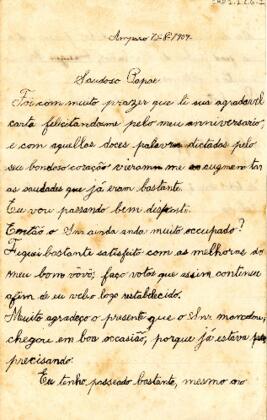 Amparo 7-8-1904.
Saudoso Papae
Foi com muito prazer que li sua agradavel
carta felicitando-me pelo meu anniversario,
e com aquellas doces palavras dictadas pelo
seu bondoso coração vieram-me augmentar
as saudades que já eram bastante.
Eu vou passando bem disposto.
Então o Snr ainda anda muito occupado?
Fiquei bastante satisfeito com as melhoras do
meu bom vôvô; faço votos que assim continue
afim de eu vel-o logo restabelecido.
Muito agradeço o presente que o Snr mandou,
chegou em boa occasião, porque já estava
precisando.
Eu tenho passeado bastante, mesmo no